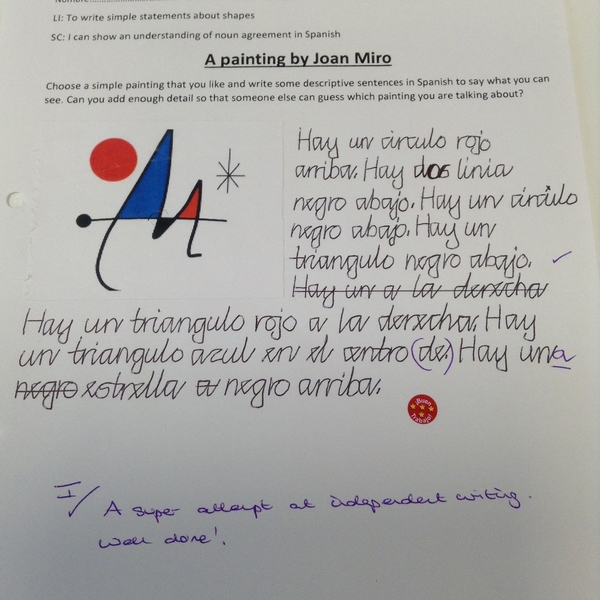 LI: To write simple statements about shapes
SC: I can show an understanding of noun agreement in Spanish
A painting by Joan Miro
Choose a simple painting that you like and write some descriptive sentences in Spanish to say what you can
see. Can you add enough detail so that someone else can guess which painting you are talking about?
Hay un círculo rojo
arriba. Hay dos linia
negro abajo. Hay un círculo
negro abajo. Hay un
triangulo negro abajo.
Hay un a la derecha
Hay un triangulo rojo a la derecha. Hay
un triangulo azul en el centro (de.) Hay una
negro estrella a negro arriba.
¡Buen
Trabajo!
I/ A super attempt at independent writing.
Well done!